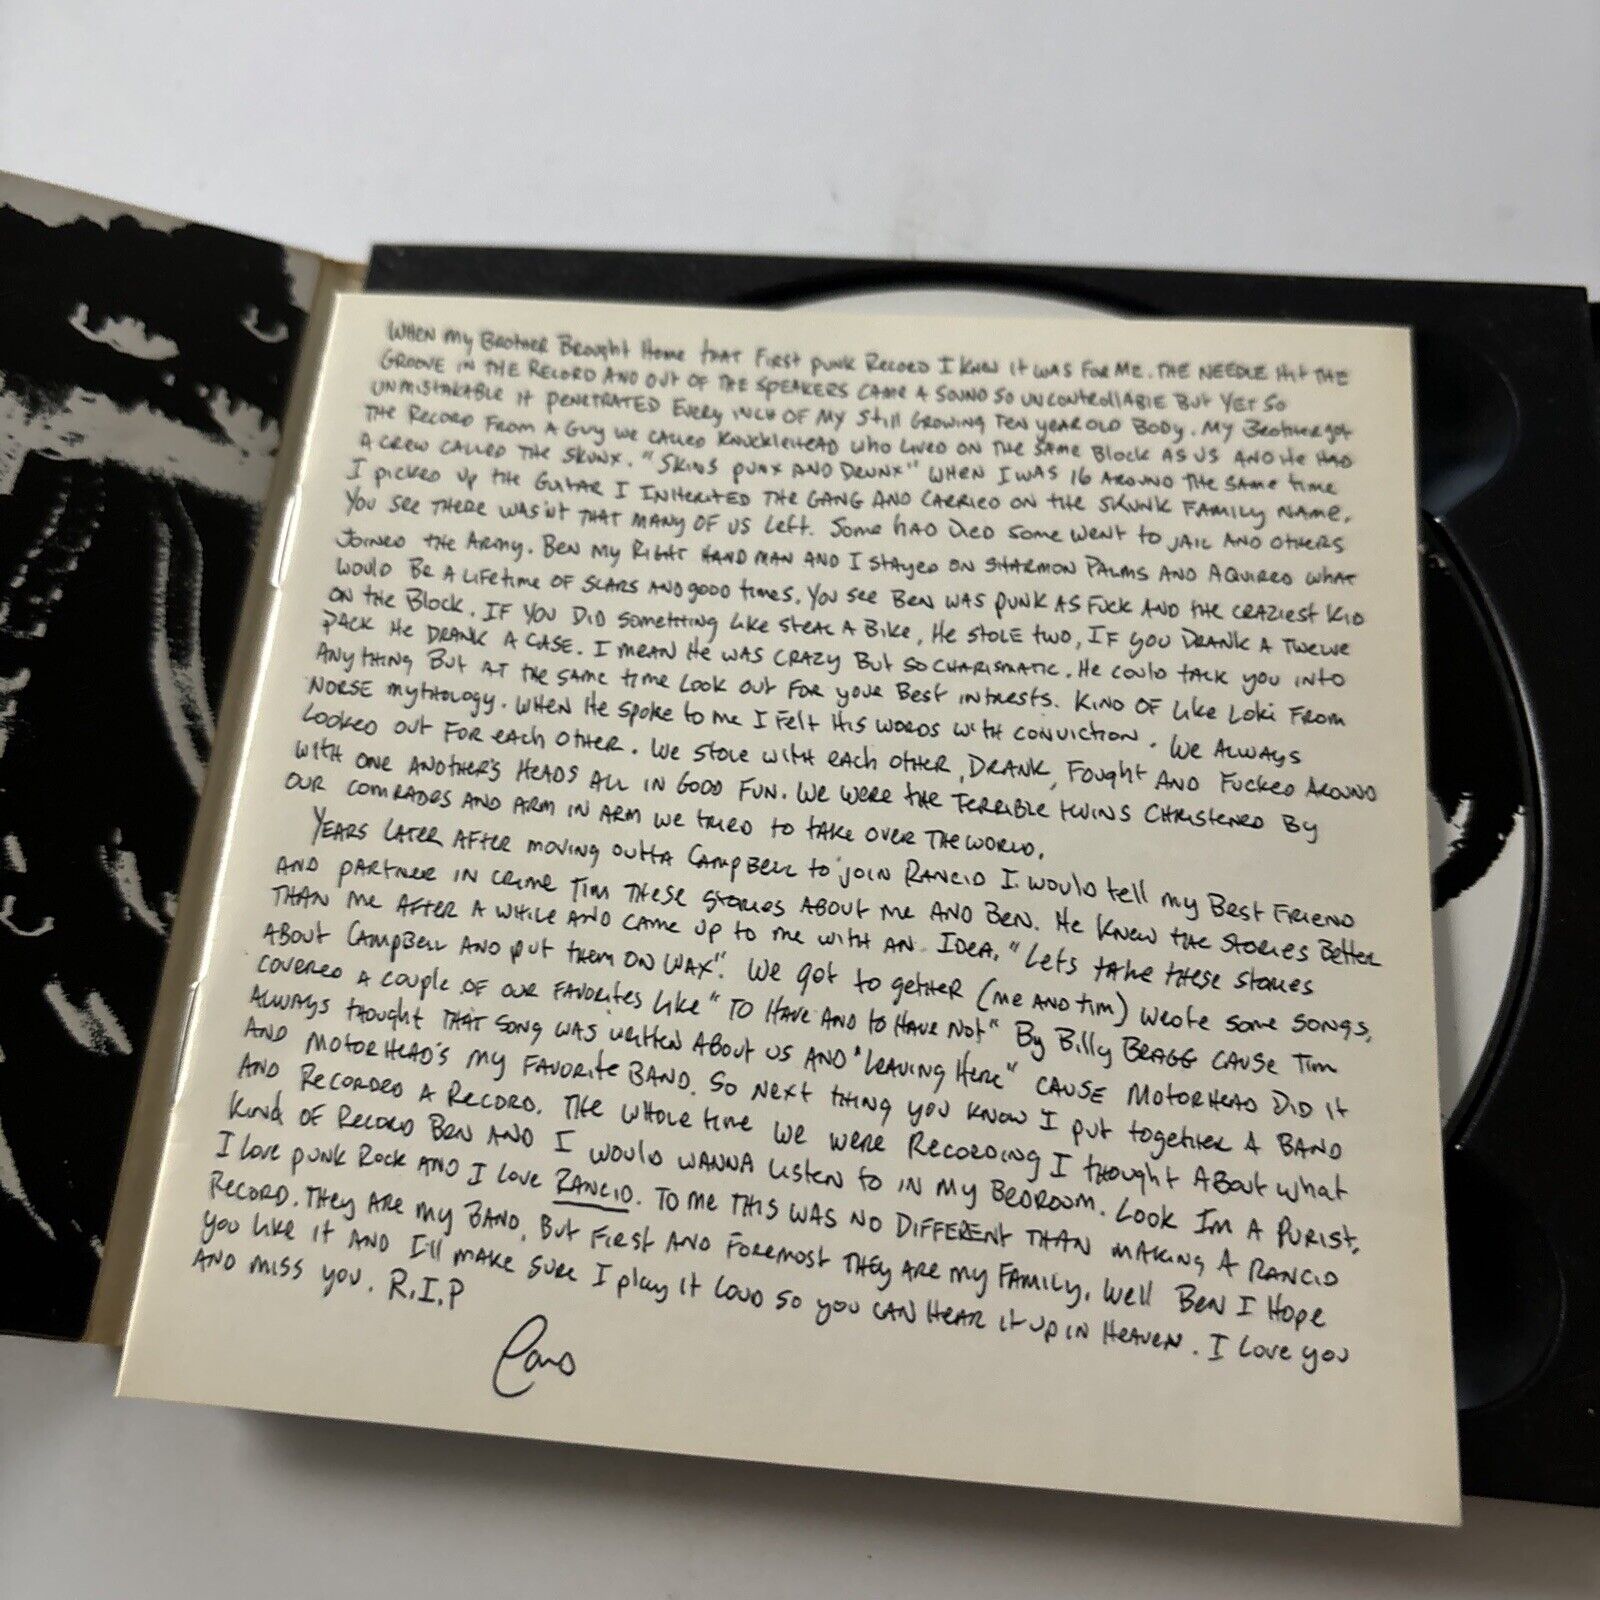 WHEN my BROTHER BROUGHT HOME THAT FIRST PUNK RECORD I KNEW IT WAS FOR ME. THE NEEDLE HIT THE
GROOVE IN THE RECORD AND OUT OF THE SPEAKERS CAME A SOUND SO UNCONTROLLABLE BUT YET SO
UNMISTAKABLE IT PENETRATED EVERY INCH OF MY STILL GROWING TEN YEAR OLD BODY. MY BROTHER GOT
THE RECORD FROM A GUY WE CALLED KNUCKLEHEAD WHO LIVED ON THE SAME BLOCK AS US AND HE HAD
A CREW CALLED THE SKUNX. "SKINS PUNX AND DRUNX" WHEN I WAS 16 AROUND THE SAME TIME
I PICKED UP THE GUITAR I INHERITED THE GANG AND CARRIED ON THE SKUNK FAMILY NAME.
YOU SEE THERE WASN'T THAT MANY OF US LEFT. SOME HAD DIED SOME WENT TO JAIL AND OTHERS
JOINED THE ARMY. BEN MY RIGHT HAND MAN AND I STAYED ON SHARMON PALMS AND AQUIRED WHAT
WOULD BE A LIFETIME OF SCARS AND GOOD TIMES. YOU SEE BEN WAS PUNK AS FUCK AND THE CRAZIEST KID
ON THE BLOCK. IF YOU DID SOMETHING LIKE STEAL A BIKE, HE STOLE TWO, IF YOU DRANK A TWELVE
PACK HE DRANK A CASE. I MEAN HE WAS CRAZY BUT SO CHARISMATIC. HE COULD TALK YOU INTO
ANYTHING BUT AT THE SAME TIME LOOK OUT FOR YOUR BEST INTRESTS. KIND OF LIKE LOKI FROM
NORSE MYTHOLOGY. WHEN HE SPOKE TO ME I FELT HIS WORDS WITH CONVICTION. WE ALWAYS
LOOKED OUT FOR EACH OTHER. WE STOLE WITH EACH OTHER, DRANK, FOUGHT AND FUCKED AROUND
WITH ONE ANOTHER'S HEADS ALL IN GOOD FUN. WE WERE THE TERRIBLE TWINS CHRISTENED BY
OUR COMRADES AND ARM IN ARM WE TRIED TO TAKE OVER THE WORLD.
YEARS LATER AFTER MOVING OUTTA CAMPBELL TO JOIN RANCID I WOULD TELL MY BEST FRIEND
AND PARTNER IN CRIME TIM THESE STORIES ABOUT ME AND BEN. HE KNEW THE STORIES BETTER
THAN ME AFTER A WHILE AND CAME UP TO ME WITH AN IDEA. "LETS TAKE THESE STORIES
ABOUT CAMPBELL AND PUT THEM ON WAX". WE GOT TO GETHER (ME AND TIM) WROTE SOME SONGS,
COVERED A COUPLE OF OUR FAVORITES LIKE "TO HAVE AND TO HAVE NOT" BY BILLY BRAGG CAUSE TIM
ALWAYS THOUGHT THAT SONG WAS WRITTEN ABOUT US AND "LEAVING HERE" CAUSE MOTORHEAD DID IT
AND MOTORHEAD'S MY FAVORITE BAND. SO NEXT THING YOU KNOW I PUT TOGETHER A BAND
AND RECORDED A RECORD. THE WHOLE TIME WE WERE RECORDING I THOUGHT ABOUT WHAT
KIND OF RECORD BEN AND I WOULD WANNA LISTEN TO IN MY BEDROOM. LOOK IM A PURIST,
I LOVE PUNK ROCK AND I LOVE RANCID. TO ME THIS WAS NO DIFFERENT THAN MAKING A RANCID
RECORD. THEY ARE MY BAND, BUT FIRST AND FOREMOST THEY ARE MY FAMILY. WELL BEN I HOPE
YOU LIKE IT AND I'LL MAKE SURE I PLAY IT LOUD SO YOU CAN HEAR IT UP IN HEAVEN. I LOVE YOU
AND MISS YOU. R.I.P